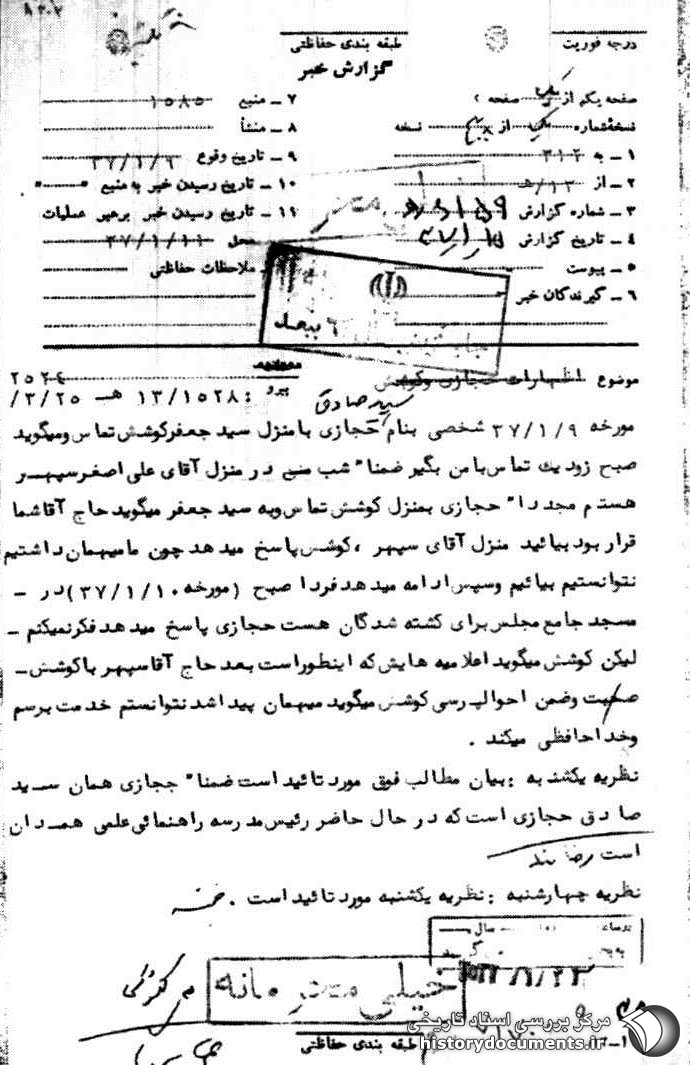 درجه فوریت
طبقه بندی حفاظتی
گزارش خبر
صفحه یکم از یک صفحه
نسخه شماره یک از نسخه
۱ ـ به ۳۱۲
۲ ـ از ۱۳/ه
۳ ـ شماره گزارش
۴ ـ تاریخ گزارش
۵ ـ پیوست
۶ ـ گیرندگان خبر
۷ ـ منبع ۱۵۸۵
۸ ـ منشأ
۹ ـ تاریخ وقوع
۱۰ ـ تاریخ رسیدن خبر به منبع
۱۱ ـ تاریخ رسیدن خبر برهبر عملیات
محل ۳۷/۱/۱۱
ملاحظات حفاظتی
موضوع اظهارات حجازی و کوشش
سید صادق
پیرو : ۱۳/۱۵۲۸ هـ ۲۵/۳/
۲۵۲۴
مورخه ۳۷/۱/۹ شخصی بنام حجازی با منزل سید جعفر کوشش تماس و میگوید
صبح زود یک تماس با من بگیر ضمنا" شب من در منزل آقای علی اصغر سپهر
هستم مجددا" حجازی بمنزل کوشش تماس و به سید جعفر میگوید حاج آقا شما
قرار بود بیائید منزل آقای سپهر ، کوشش پاسخ میدهد چون ما میهمان داشتیم
نتوانستیم بیائیم و سپس ادامه میدهد فردا صبح (مورخه ۳۷/۱/۱۰) در ـ
مسجد جامع مجلس برای کشته شدگان هست حجازی پاسخ میدهد فکر نمیکنم ـ
لیکن کوشش میگوید اعلامیه هایش که اینطور است بعد حاج آقا سپهر با کوشش ـ
صحبت و ضمن احوالپرسی کوشش میگوید میهمان پیدا شد نتوانستم خدمت برسم
و خداحافظی میکند .
نظریه یکشنبه : بیان مطالب فوق مورد تائید است ضمنا" حجازی همان سید
صادق حجازی است که در حال حاضر رئیس مدرسه راهنمائی علمی همدان
است
نظریه چهارشنبه : نظریه یکشنبه مورد تائید است .
خیلی محرمانه
طبقه بندی حفاظتی
مرکز بررسی اسناد تاریخی
historydocuments.ir